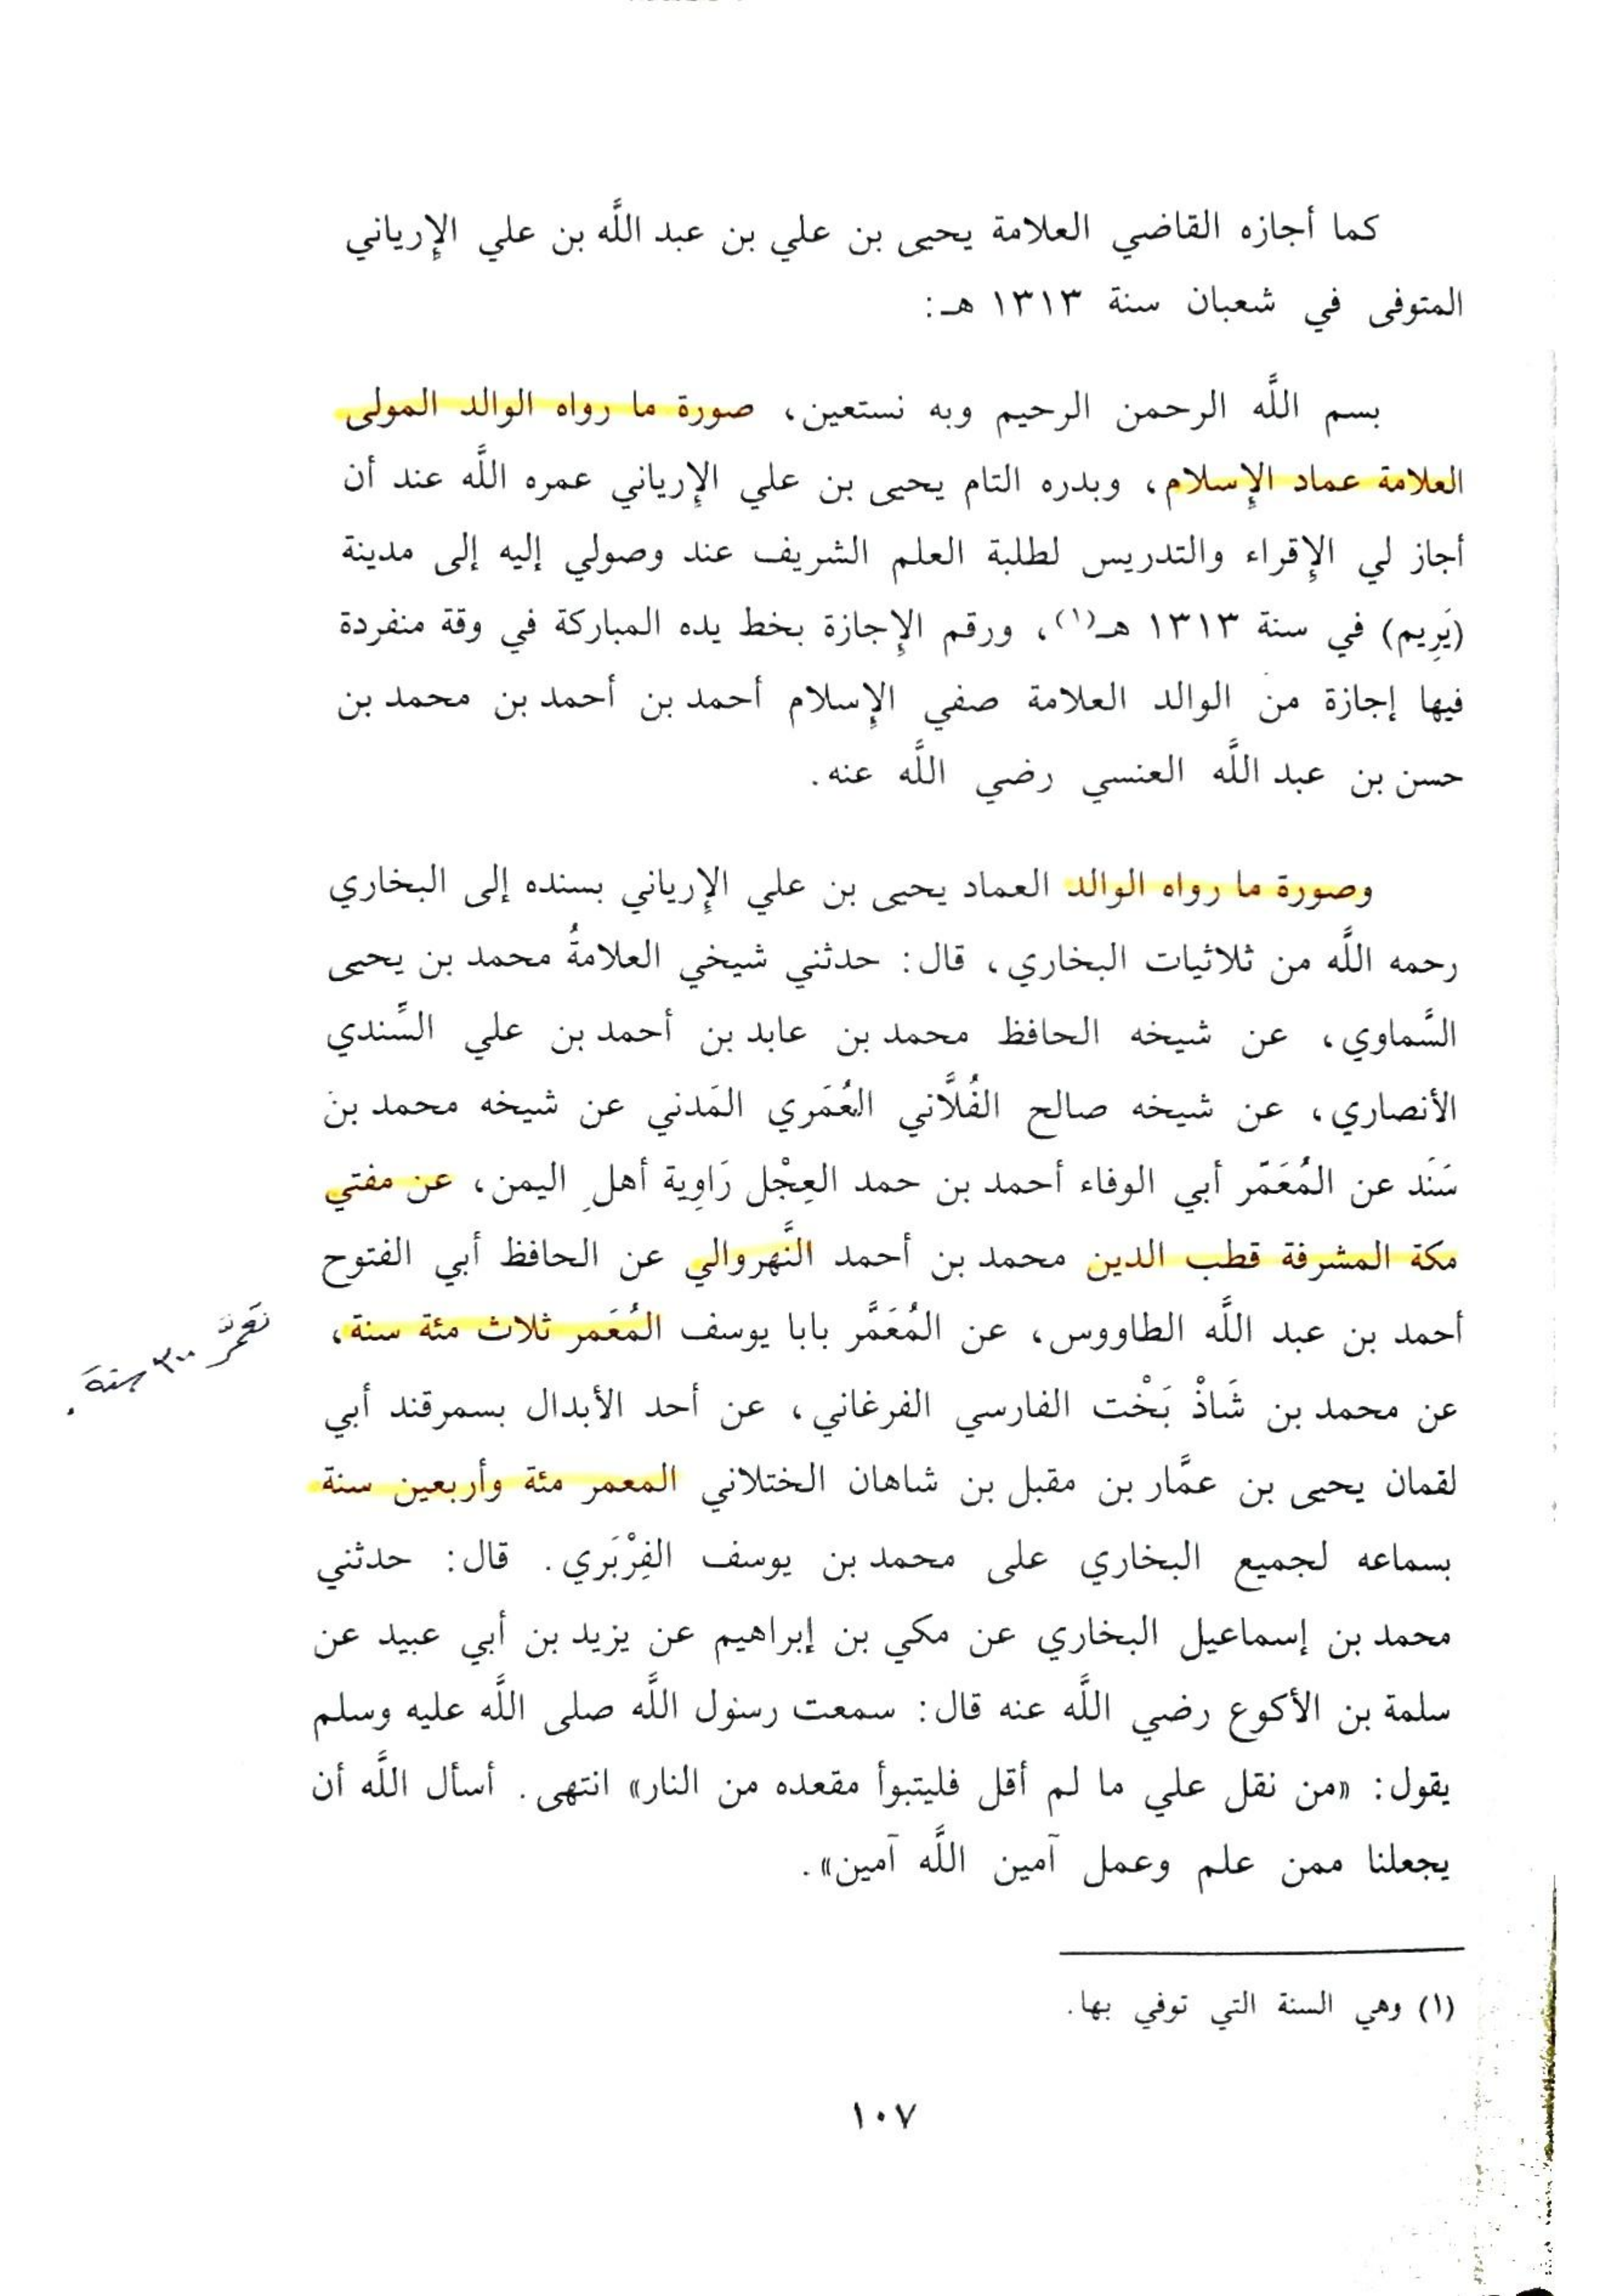 كما أجازه القاضي العلامة يحيى بن علي بن عبد اللَّه بن علي الإرياني
المتوفى في شعبان سنة ١٣١٣ هـ:
بسم اللَّه الرحمن الرحيم وبه نستعين، صورة ما رواه الوالد المولى
العلامة عماد الإسلام، وبدره التام يحيى بن علي الإرياني عمره اللَّه عند أن
أجاز لي الإقراء والتدريس لطلبة العلم الشريف عند وصولي إليه إلى مدينة
(يَرِيم) في سنة ١٣١٣ هـ(١)، ورقم الإجازة بخط يده المباركة في وقة منفردة
فيها إجازة من الوالد العلامة صفي الإسلام أحمد بن أحمد بن محمد بن
حسن بن عبد اللَّه العنسي رضي اللَّه عنه.
وصورة ما رواه الوالد العماد يحيى بن علي الإرياني بسنده إلى البخاري
رحمه اللَّه من ثلاثيات البخاري، قال: حدثني شيخي العلامةُ محمد بن يحيى
السَّماوي، عن شيخه الحافظ محمد بن عابد بن أحمد بن علي السِّندي
الأنصاري، عن شيخه صالح الفُلَّاني العُمَري المَدني عن شيخه محمد بن
سَنَد عن المُعَمّر أبي الوفاء أحمد بن حمد العِجْل رَاوِية أهلِ اليمن، عن مفتي
مكة المشرفة قطب الدين محمد بن أحمد النَّهروالي عن الحافظ أبي الفتوح
أحمد بن عبد اللَّه الطاووس، عن المُعَمَّر بابا يوسف المُعَمر ثلاث مئة سنة،
نعمَّر ٣٠٠ سنة.
عن محمد بن شَاذْ بَخْت الفارسي الفرغاني، عن أحد الأبدال بسمرقند أبي
لقمان يحيى بن عمَّار بن مقبل بن شاهان الختلاني المعمر مئة وأربعين سنة
بسماعه لجميع البخاري على محمد بن يوسف الفِرْبَري. قال: حدثني
محمد بن إسماعيل البخاري عن مكي بن إبراهيم عن يزيد بن أبي عبيد عن
سلمة بن الأكوع رضي اللَّه عنه قال: سمعت رسول اللَّه صلى اللَّه عليه وسلم
يقول: «من نقل علي ما لم أقل فليتبوأ مقعده من النار» انتهى. أسأل اللَّه أن
يجعلنا ممن علم وعمل آمين اللَّه آمين».
(١) وهي السنة التي توفي بها.
١٠٧